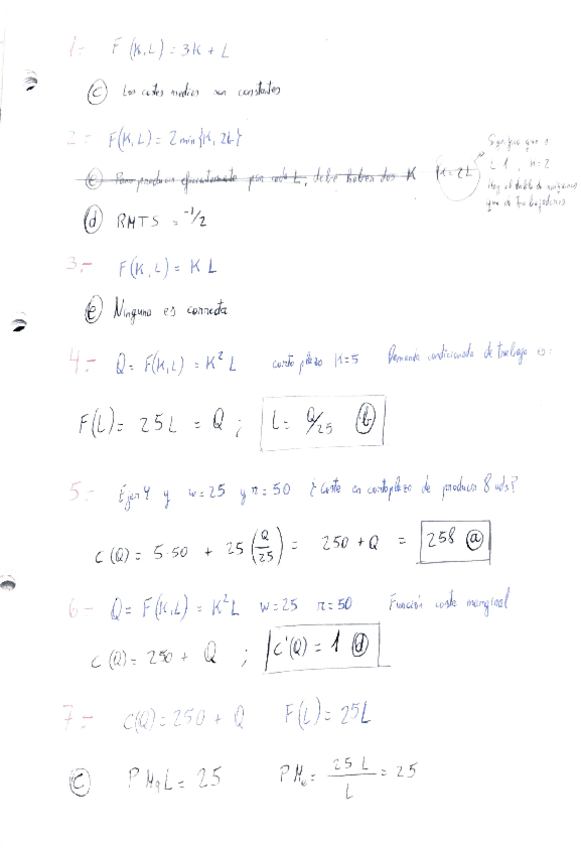 1.- F(K,L) = 3K + L
(c) Los costes medios son constantes
2.- F(K,L) = 2 min{K, 2L}
(c) Para producir eficientemente por cada L, debe haber dos K (K = 2L) Significa que si
L=1, K=2
Hay el doble de máquinas
que de trabajadores
(d) RMTS = -1/2
3.- F(K,L) = K L
(e) Ninguna es correcta
4.- Q = F(K,L) = K² L corto plazo K=5 Demanda condicionada de trabajo es:
F(L) = 25L = Q ; L = Q/25 (b)
5.- Ejer 4 y w=25 y r=50 ¿coste en corto plazo de producir 8 uds?
C(Q) = 5·50 + 25 (Q/25) = 250 + Q = 258 (a)
6.- Q = F(K,L) = K² L w=25 r=50 Función coste marginal
C(Q) = 250 + Q ; C'(Q) = 1 (d)
7.- C(Q) = 250 + Q F(L) = 25L
(c) PMgL = 25 PMe = 25 L / L = 25